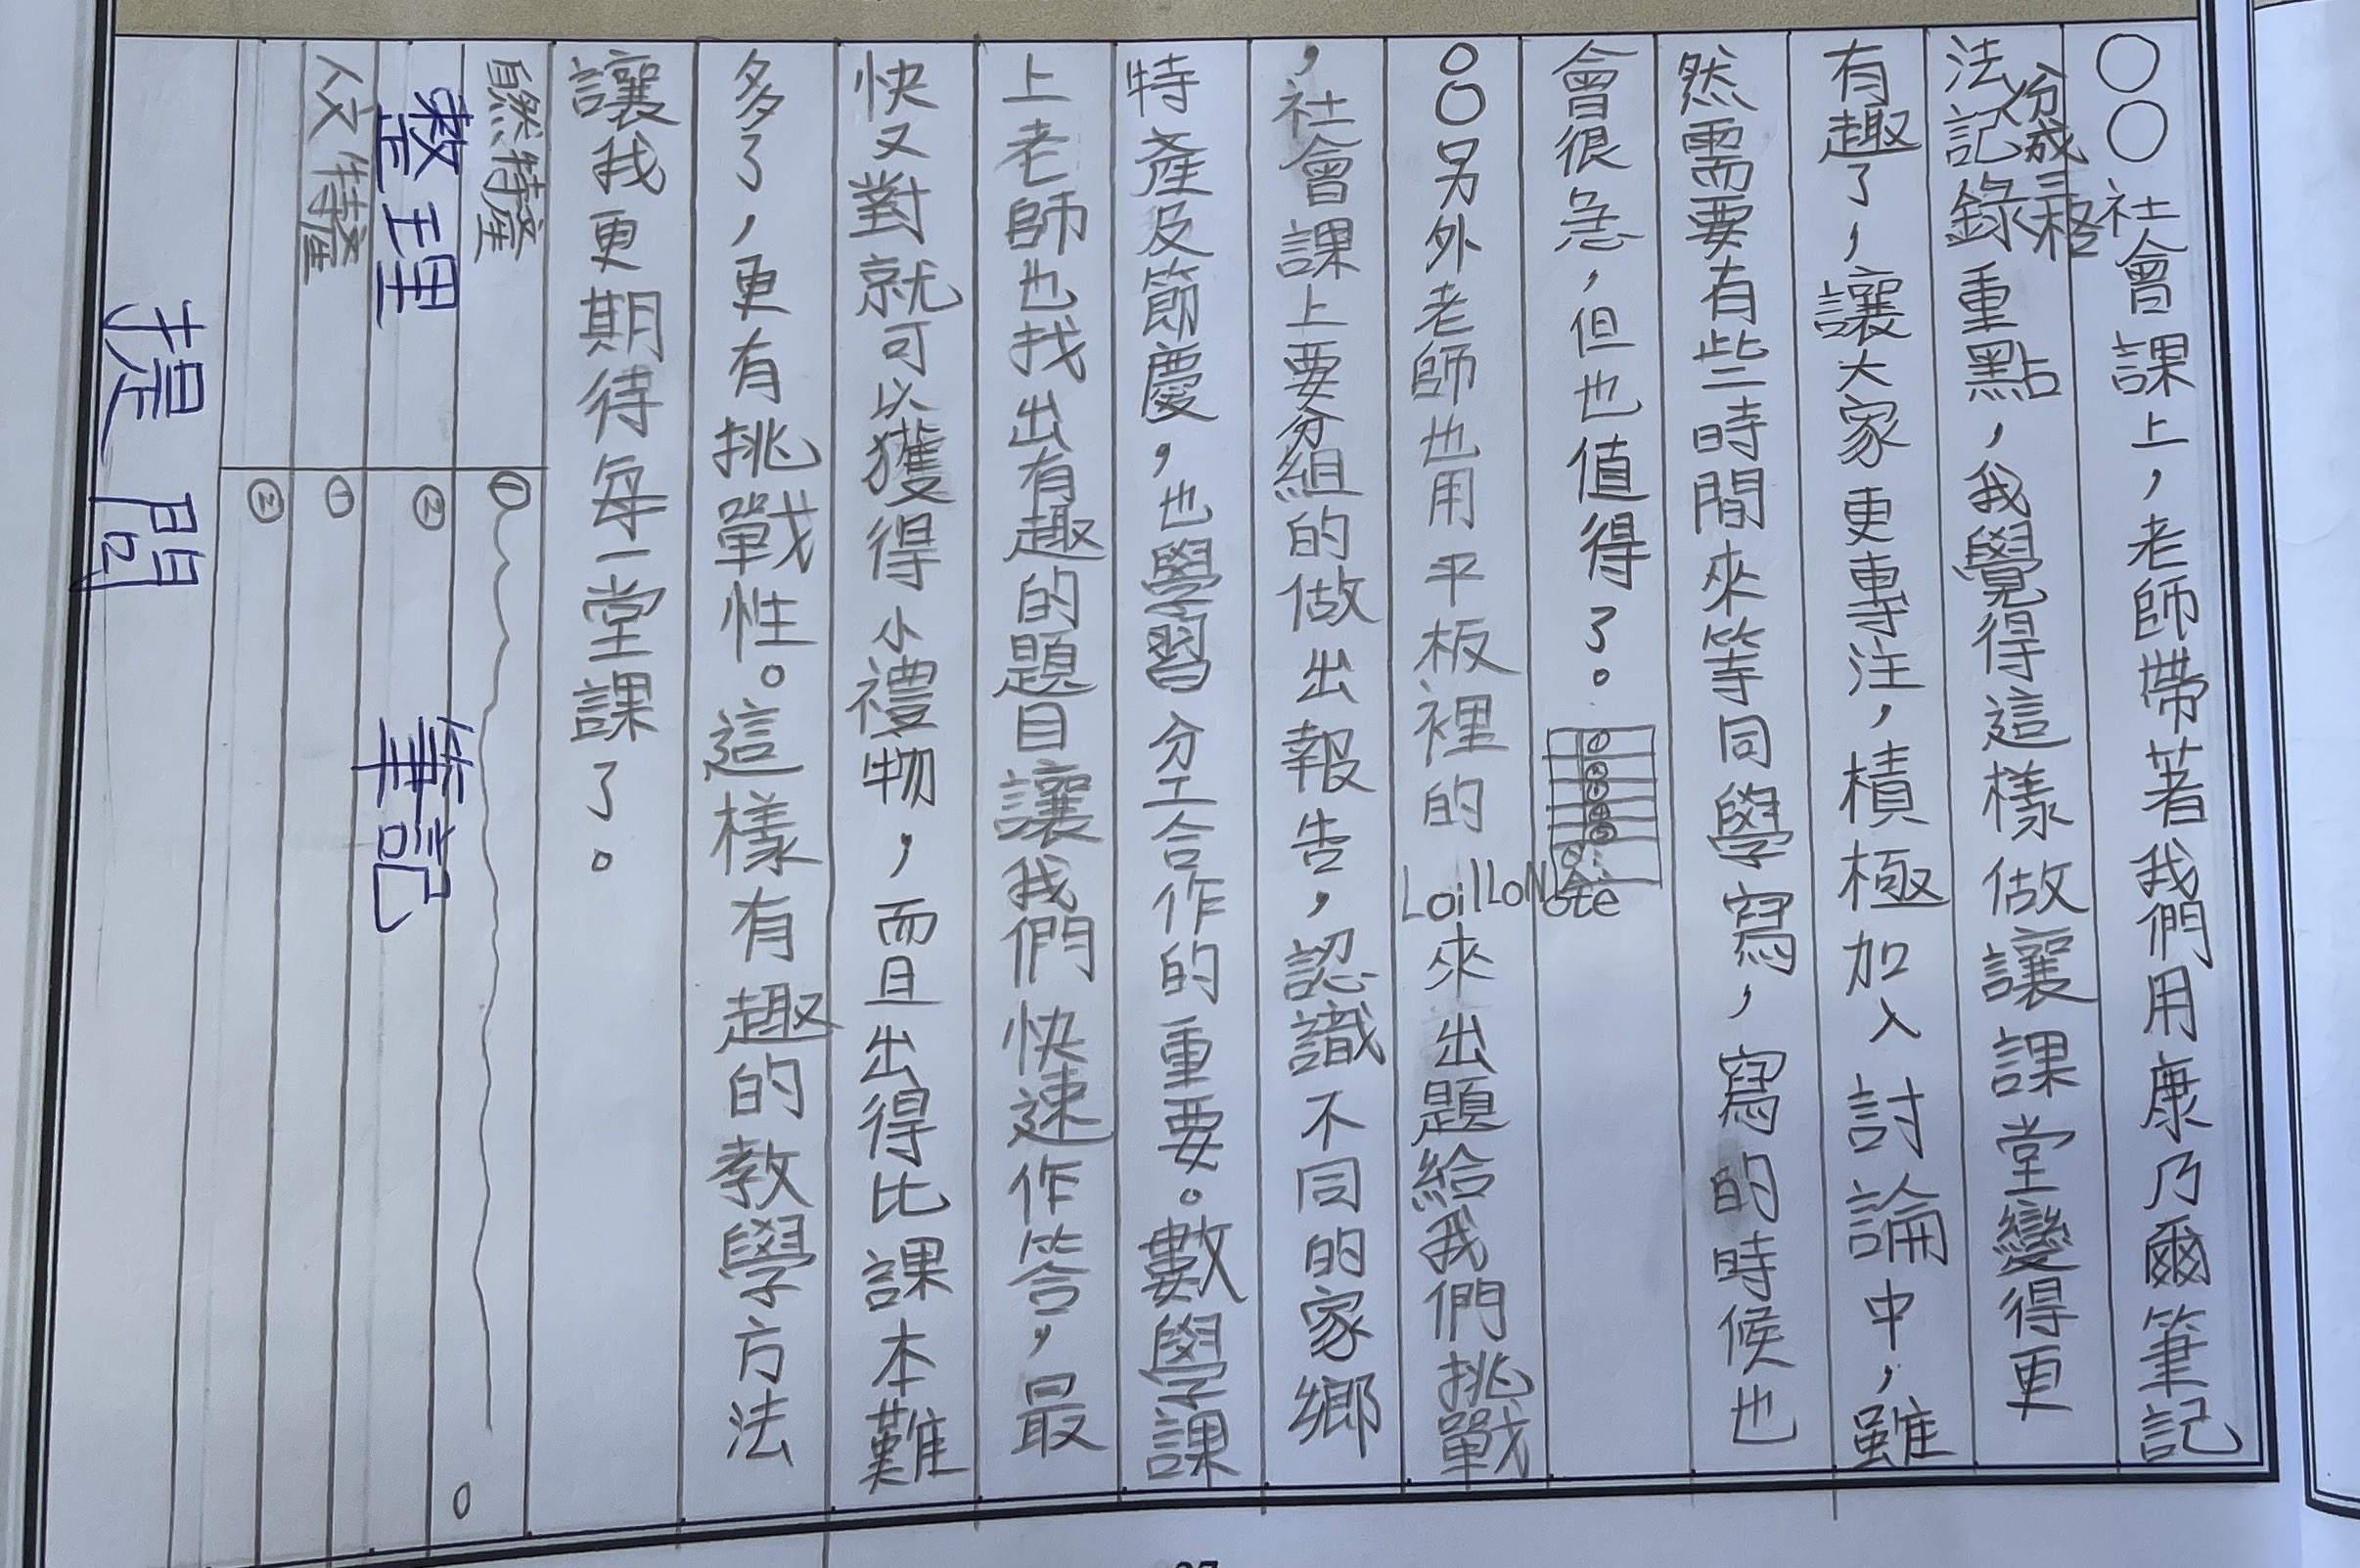 ○○社會課上，老師帶著我們用康乃爾筆記
法記錄重點，我覺得這樣做讓課堂變得更
份成三格
有趣了，讓大家更專注，積極加入討論中，雖
然需要有些時間來等同學寫，寫的時候也
會很急，但也值得了。
○○另外老師也用平板裡的LoilLoNote來出題給我們挑戰
，社會課上要分組的做出報告，認識不同的家鄉
特產及節慶，也學習分工合作的重要。數學課
上老師也找出有趣的題目讓我們快速作答，最
快又對就可以獲得小禮物，而且出得比課本難
多了，更有挑戰性。這樣有趣的教學方法
讓我更期待每一堂課了。
自然特產 ①
整理 ② 筆記
人文特產 ①
②
提問